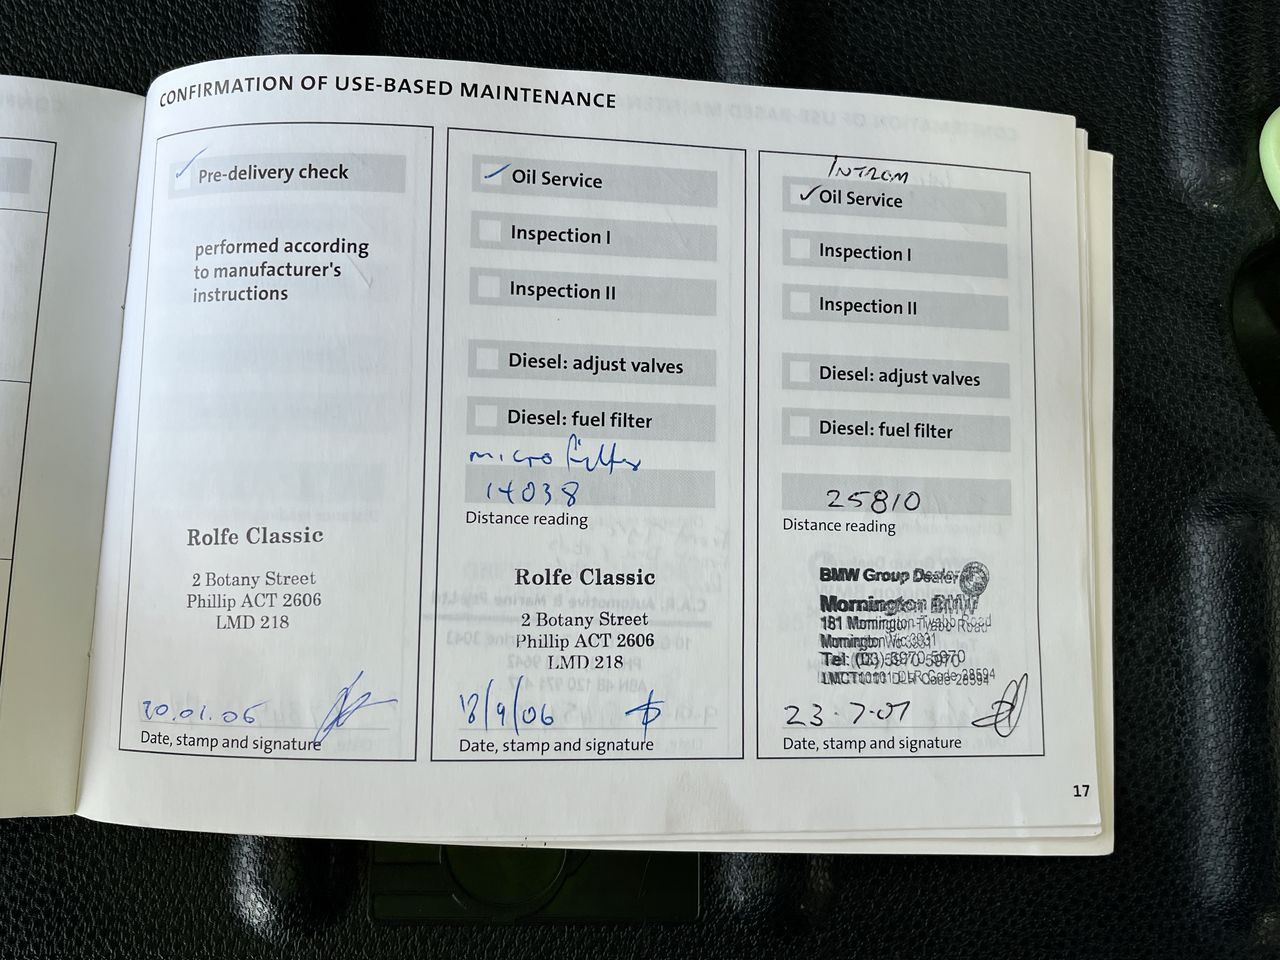 CONFIRMATION OF USE-BASED MAINTENANCE
Pre-delivery check
performed according
to manufacturer's
instructions
Rolfe Classic
2 Botany Street
Phillip ACT 2606
LMD 218
20.01.06
Date, stamp and signature
Oil Service
Inspection I
Inspection II
Diesel: adjust valves
Diesel: fuel filter
micro filter
14038
Distance reading
Rolfe Classic
2 Botany Street
Phillip ACT 2606
LMD 218
/9/06
Date, stamp and signature
INTRGM
Oil Service
Inspection I
Inspection II
Diesel: adjust valves
Diesel: fuel filter
25810
Distance reading
BMW Group Dealer
Mornington BMW
181 Mornington-Tyabb Road
Mornington Vic 3931
Tel: (03) 5970 5970
LMCT10101 DLR Code 28594
23-7-07
Date, stamp and signature
17